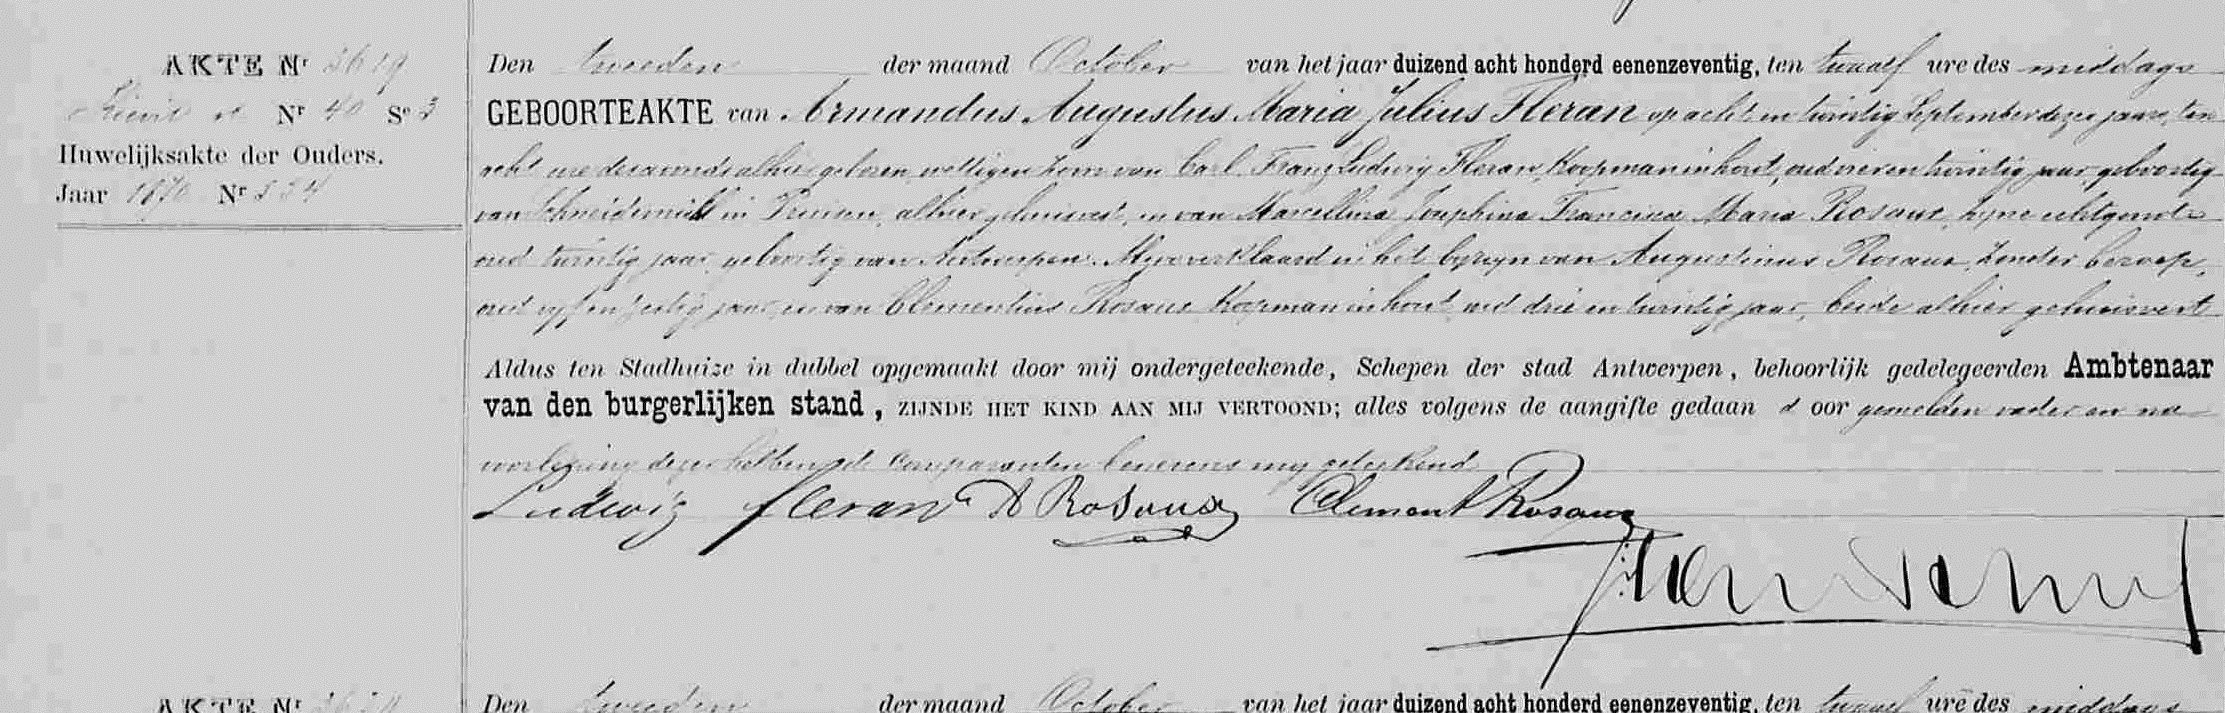 AKTE Nr 3619
Nr 40 Se 3
Huwelijksakte der Ouders.
Jaar 1870 Nr 534
Den tweeden der maand October van het jaar duizend acht honderd eenenzeventig, ten twaalf ure des middags
GEBOORTEAKTE van Armandus Augustus Maria Julius Fleran op acht en twintig September dezes jaars, ten
acht ure des avonds alhier geboren, wettigen zoon van Carl Franz Ludwig Fleran, Koopman in hout, oud vier en twintig jaar, geboortig
van Schneidemühl in Pruisen, alhier gehuisvest, en van Marcellina Josephina Francisca Maria Rosaux, zyne echtgenote
oud twintig jaar, geboortig van Antwerpen. Myn verklaard in het bijzyn van Augustinus Rosaux, zonder beroep,
oud vyf en zestig jaar, en van Clementius Rosaux Koopman in hout, oud drie en twintig jaar, beide alhier gehuisvest
Aldus ten Stadhuize in dubbel opgemaakt door mij ondergeteekende, Schepen der stad Antwerpen, behoorlijk gedelegeerden Ambtenaar
van den burgerlijken stand, ZIJNDE HET KIND AAN MIJ VERTOOND; alles volgens de aangifte gedaan d oor gemelden vader en na
voorlezing dezer hebben de comparanten benevens my geteekend
Ludwig fleran A Rosaux Clement Rosaux
AKTE Nr
Den tweeden der maand October van het jaar duizend acht honderd eenenzeventig, ten twaalf ure des middags